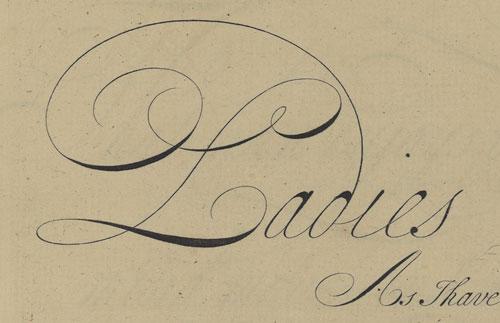 Ladies
As I have